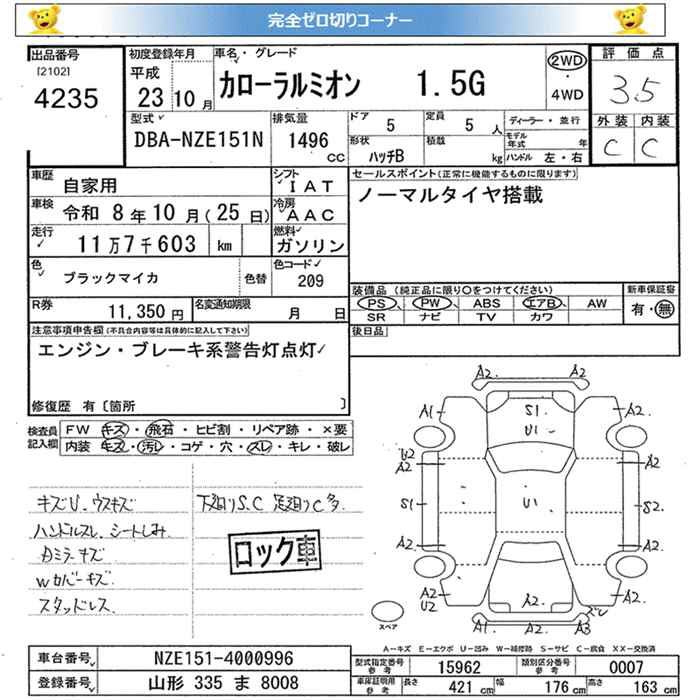 完全ゼロ切りコーナー
出品番号
[2102]
4235
初度登録年月
平成
23年10月
車名・グレード
カローラルミオン 1.5G
2WD
・
4WD
評価点
3.5
外装 内装
C C
型式
DBA-NZE151N
排気量
1496
CC
ドア 5
定員 5 人
形状 ハッチB
積載 kg
ディーラー・並行
モデル年式 年
ハンドル 左・右
車歴 自家用
シフト
IAT
車検 令和 8年10月(25日)
冷房
AAC
走行 11万7千603 km
燃料
ガソリン
色 ブラックマイカ
色替
色コード
209
R券 11,350円
名変通知期限 月 日
セールスポイント(正常に機能するものに限ります)
ノーマルタイヤ搭載
装備品 (純正品に限り〇をつけてください)
新車保証書
PS PW ABS エアB AW
有・無
SR ナビ TV カワ
後日品
注意事項申告欄(不具合内容等は具体的に記入して下さい)
エンジン・ブレーキ系警告灯点灯
修復歴 有〔箇所 〕
検査員記入欄
FW キズ・飛石・ヒビ割・リペア跡・×要
内装 キズ・汚レ・コゲ・穴・スレ・キレ・破レ
キズU.ウスキズ
ハンドルスレ.シートしみ
Dミラーキズ
Wカバーキズ
スタッドレス
下廻りS.C 足廻りC多
ロック車
A2 A2
A1 S1 A2
U1
U2
A2 A2
S1 U1 S2
A2 A2
A2
U2 A2 A2 スレ
A1 A2 A3
スペア
A―キズ E―エクボ U―凹み W―補修跡 S―サビ C―腐食 XX―交換済
車台番号 NZE151-4000996
登録番号 山形 335 ま 8008
型式指定番号
参考
15962
類別区分番号
参考
0007
車庫証明用
参考
長さ 421 cm 幅 176 cm 高さ 163 cm